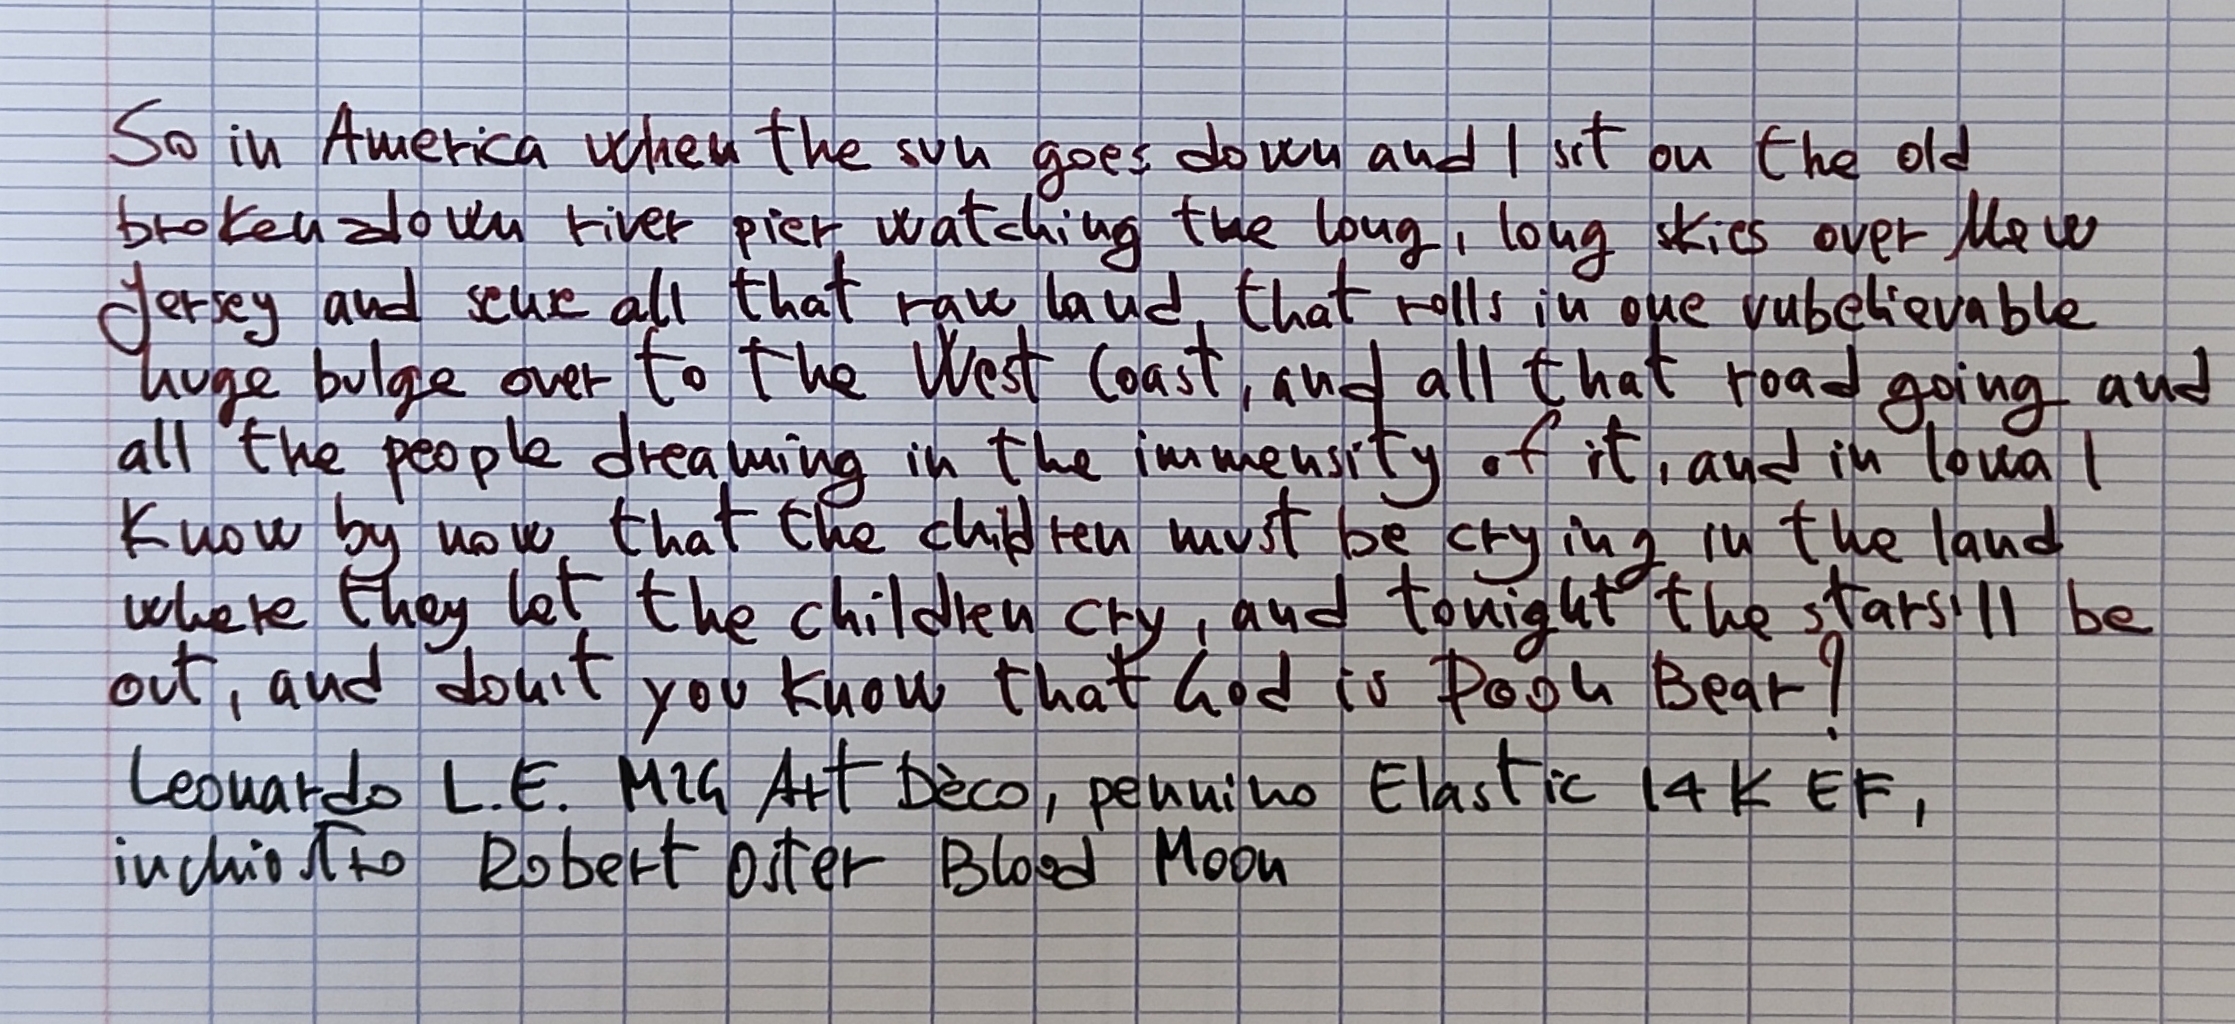 So in America when the sun goes down and I sit on the old
broken-down river pier watching the long, long skies over New
Jersey and sense all that raw land that rolls in one unbelievable
huge bulge over to the West Coast, and all that road going and
all the people dreaming in the immensity of it, and in Iowa I
know by now that the children must be crying in the land
where they let the children cry, and tonight the stars'll be
out, and don't you know that God is Pooh Bear?
Leonardo L.E. MZG Art Dèco, pennino Elastic 14K EF,
inchiostro Robert Oster Blood Moon